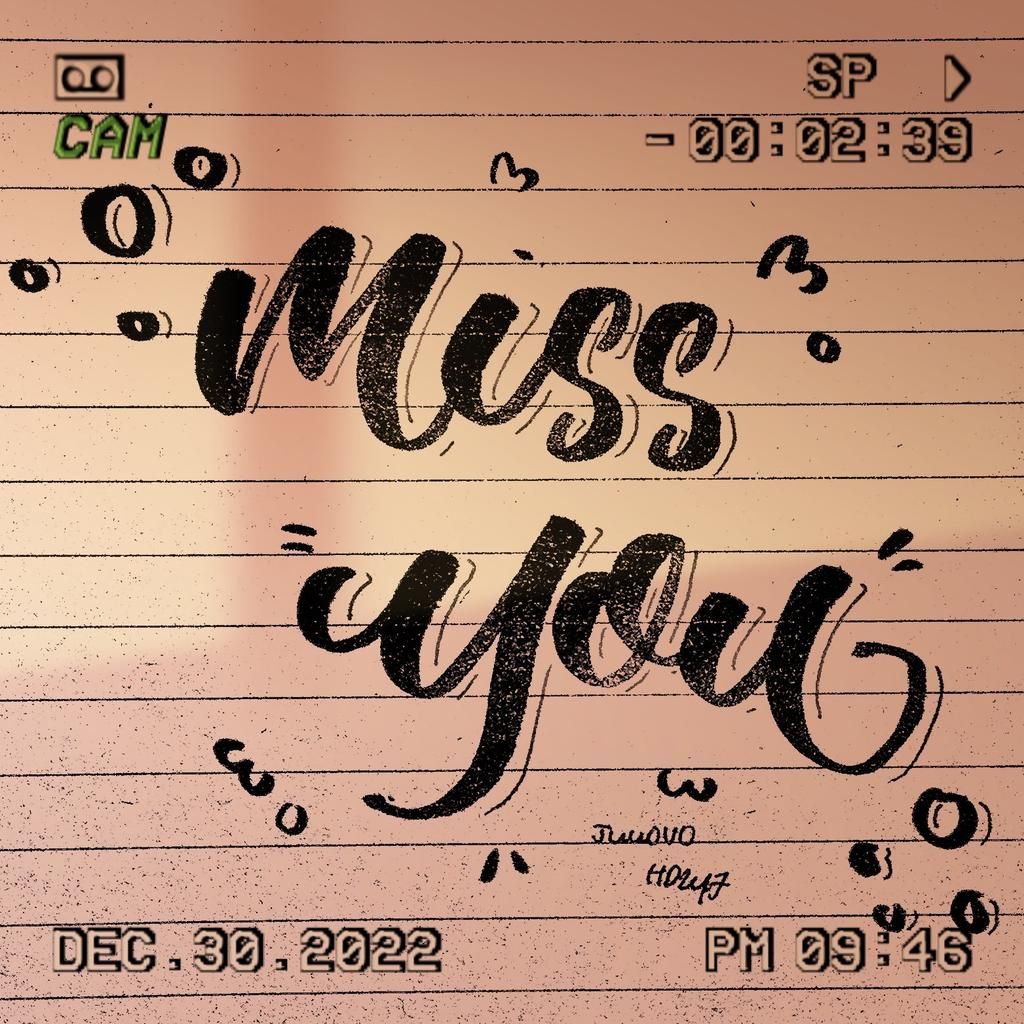 SP
CAM
-00:02:39
Miss
you
DEC.30.2022
PM 09:46